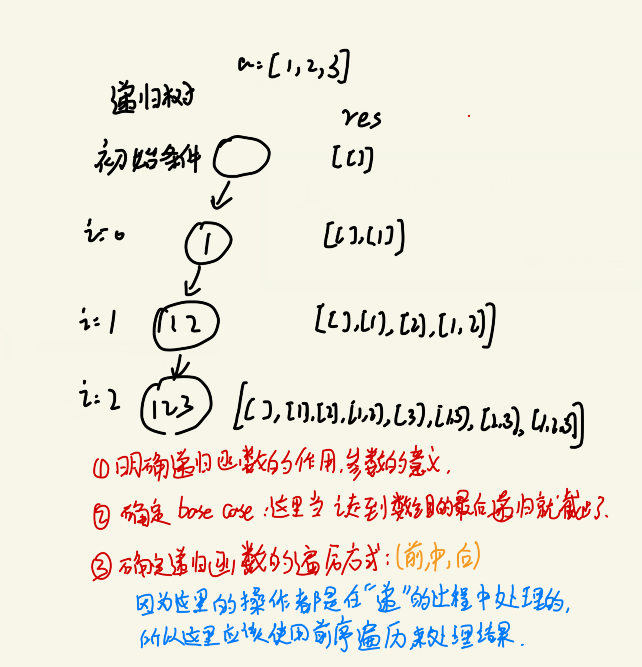 a=[1,2,3]
递归树
res
初始条件 [[]]
i=0 1 [[],[1]]
i=1 1,2 [[],[1],[2],[1,2]]
i=2 123 [[],[1],[2],[1,2],[3],[1,3],[2,3],[1,2,3]]
①明确递归函数的作用,参数的意义.
②确定 base case:这里当i走到数组的最后递归就截止了.
③确定递归函数的遍历方式:(前,中,后)
因为这里的操作都是在“递”的过程中处理的,
所以这里应该使用前序遍历来处理结果.